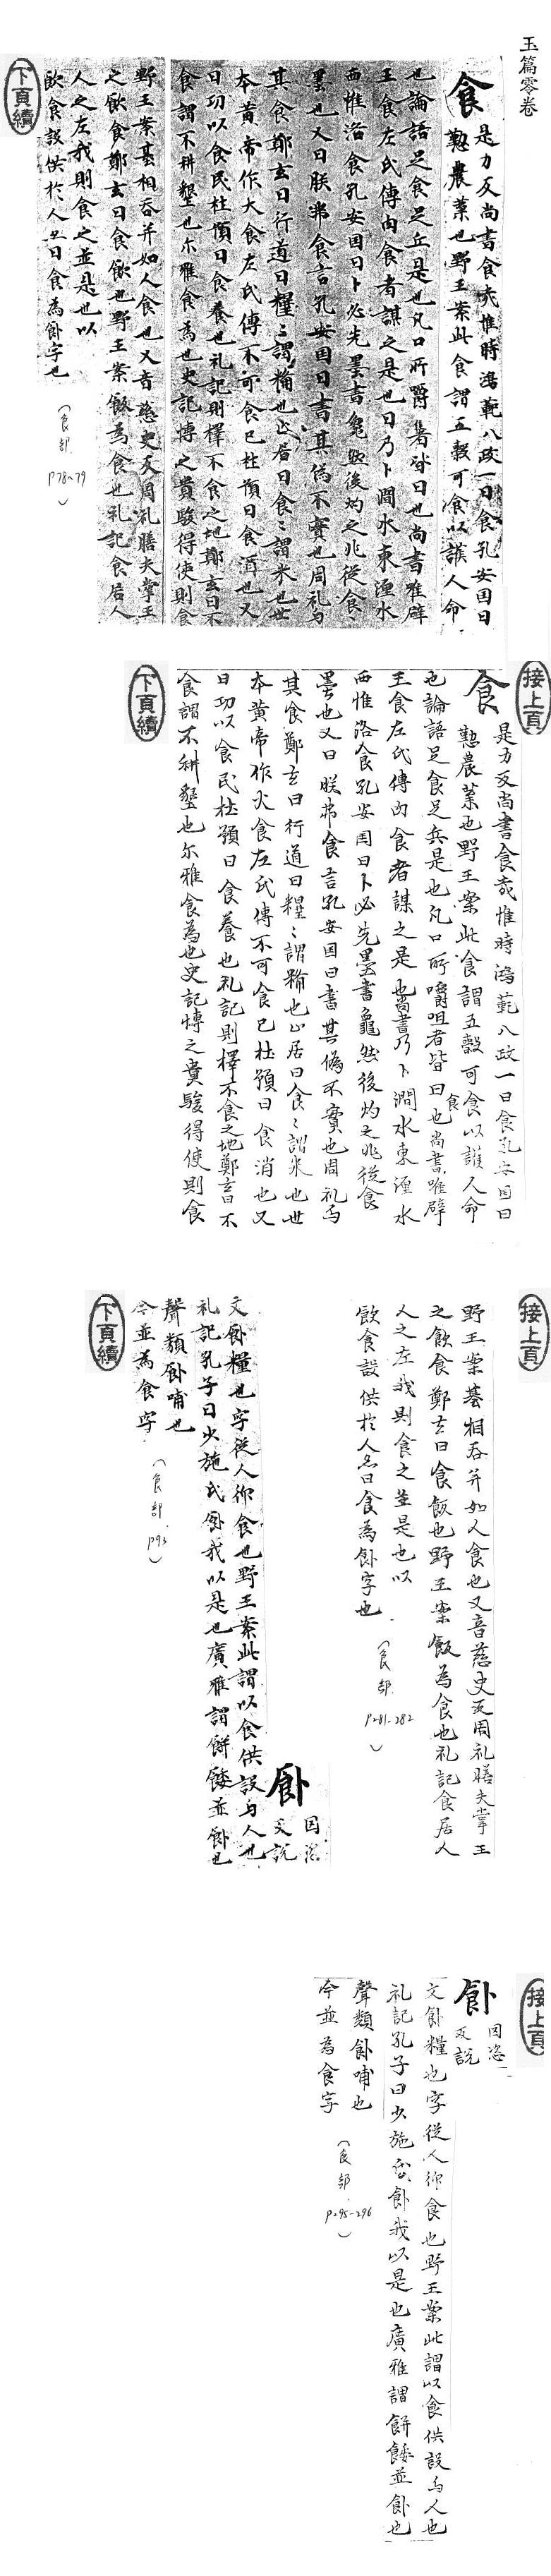 玉篇零卷
食
是力反尚書食哉惟時鴻範八政一曰食孔安国曰
懃農業也野王案此食謂五穀可食以護人命
也論語足食足兵是也凡口所嚼著皆曰也尚書唯辟
王食左氏傳肉食者謀之是也曰乃卜澗水東瀍水
西惟洛食孔安国曰卜必先墨書龜然後灼之兆従食〻
墨也又曰朕弗食言孔安国曰書其偽不實也周礼与
其食鄭玄曰行道曰糧〻謂糒也止居曰食〻謂米也世
本黄帝作火食左氏傳不可食已杜預曰食消也又
曰功以食民杜預曰食養也礼記則擇不食之地鄭玄曰不
食謂不耕墾也尓雅食為也史記博之貴駿得使則食
野王案甚相吞并如人食也又音慈史反周礼膳夫掌王
之飲食鄭玄曰食飯也野王案飯為食也礼記食居人
人之左我則食之並是也以
飲食設供於人亦曰食為飤字也
（食部 P78~79）
下頁續
接上頁
食
是力反尚書食哉惟時鴻範八政一曰食孔安国曰
懃農業也野王案此食謂五穀可食以護人命
也論語足食足兵是也凡口所嚼咀者皆曰食也尚書唯辟
王食左氏傳肉食者謀之是也尚書乃卜澗水東瀍水
西惟洛食孔安国曰卜必先墨書龜然後灼之兆従食
墨也又曰朕弗食言孔安国曰書其偽不實也周礼与
其食鄭玄曰行道曰糧〻謂糒也止居曰食〻謂米也世
本黄帝作火食左氏傳不可食已杜預曰食消也又
曰功以食民杜預曰食養也礼記則擇不食之地鄭玄曰不
食謂不耕墾也尓雅食為也史記博之貴駿得使則食
下頁續
接上頁
野王案甚相吞并如人食也又音慈史反周礼膳夫掌王
之飲食鄭玄曰食飯也野王案飯為食也礼記食居人
人之左我則食之並是也以
飲食設供於人亦曰食為飤字也
（食部 P281-282）
飤
囙恣
反説
文飤糧也字従人仰食也野王案此謂以食供設与人也
礼記孔子曰少施氏飤我以是也廣雅謂餅餧並飤也
聲類飤哺也
今並為食字
（食部 P93）
下頁續
接上頁
飤
囙恣
反説
文飤糧也字従人仰食也野王案此謂以食供設与人也
礼記孔子曰少施氏飤我以是也廣雅謂餅餧並飤也
聲類飤哺也
今並為食字
（食部 P295-296）